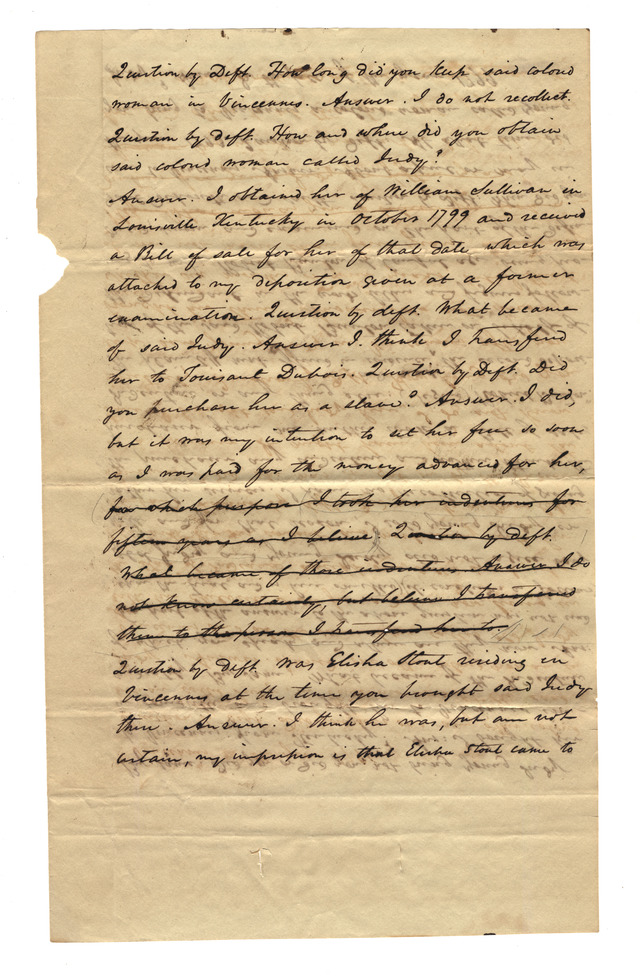 Question by Deft. How long did you keep said colored
woman in Vincennes. Answer. I do not recollect.
Question by deft. How and where did you obtain
said colored woman called Judy?
Answer. I obtained her of William Sullivan in
Louisville Kentucky in October 1799 and received
a Bill of sale for her of that date which was
attached to my deposition given at a former
examination. Question by deft. What became
of said Judy. Answer I. think I transfered
her to Touisant Dubois. Question by Deft. Did
you purchase her as a slave? Answer. I did,
but it was my intention to set her free so soon
as I was paid for the money advanced for her,
(for which purpose I took her indentures for
fifteen years as I believe) Question by deft.
What became of those indentures Answer I do
not know certainly, but believe I transferred
them to the person I transfered her to.
Question by Deft was Elisha Stout residing in
Vincennes at the time you brought said Judy
there. Answer. I think he was, but am not
certain, my impression is that Elisha Stout came to